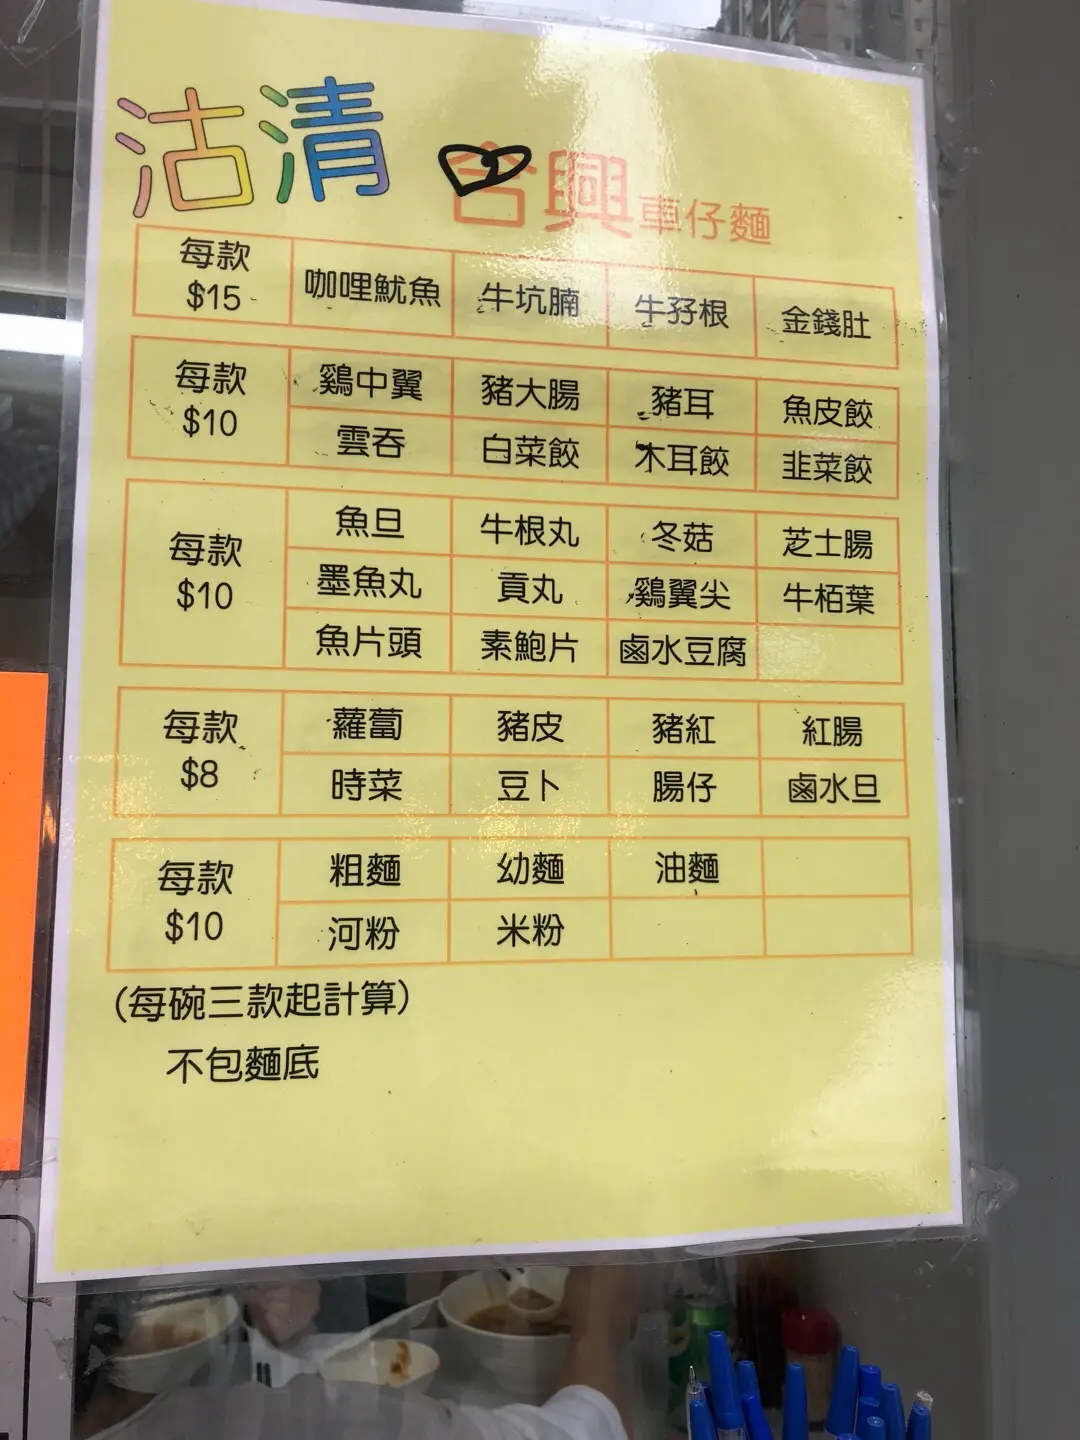 沽清
合興車仔麵
每款 $15 咖哩魷魚 牛坑腩 牛孖根 金錢肚
每款 $10 鷄中翼 豬大腸 豬耳 魚皮餃
雲吞 白菜餃 木耳餃 韭菜餃
每款 $10 魚旦 牛根丸 冬菇 芝士腸
墨魚丸 貢丸 鷄翼尖 牛栢葉
魚片頭 素鮑片 鹵水豆腐
每款 $8 蘿蔔 豬皮 豬紅 紅腸
時菜 豆卜 腸仔 鹵水旦
每款 $10 粗麵 幼麵 油麵
河粉 米粉
(每碗三款起計算)
不包麵底